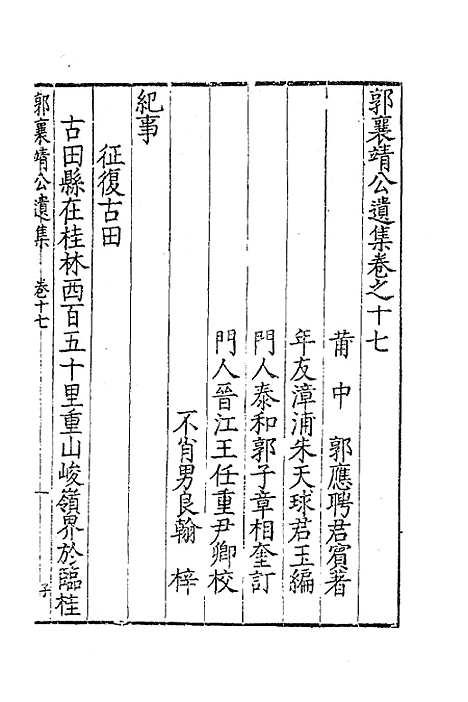 郭襄靖公遺集卷之十七
莆中　郭應聘君賓著
年友漳浦朱天球君玉編
門人泰和郭子章相奎訂
門人晉江王任重尹卿校
不肖男良翰　梓
紀事
征復古田
古田縣在桂林西百五十里重山峻嶺界於臨桂
郭襄靖公遺集　卷十七　一　子